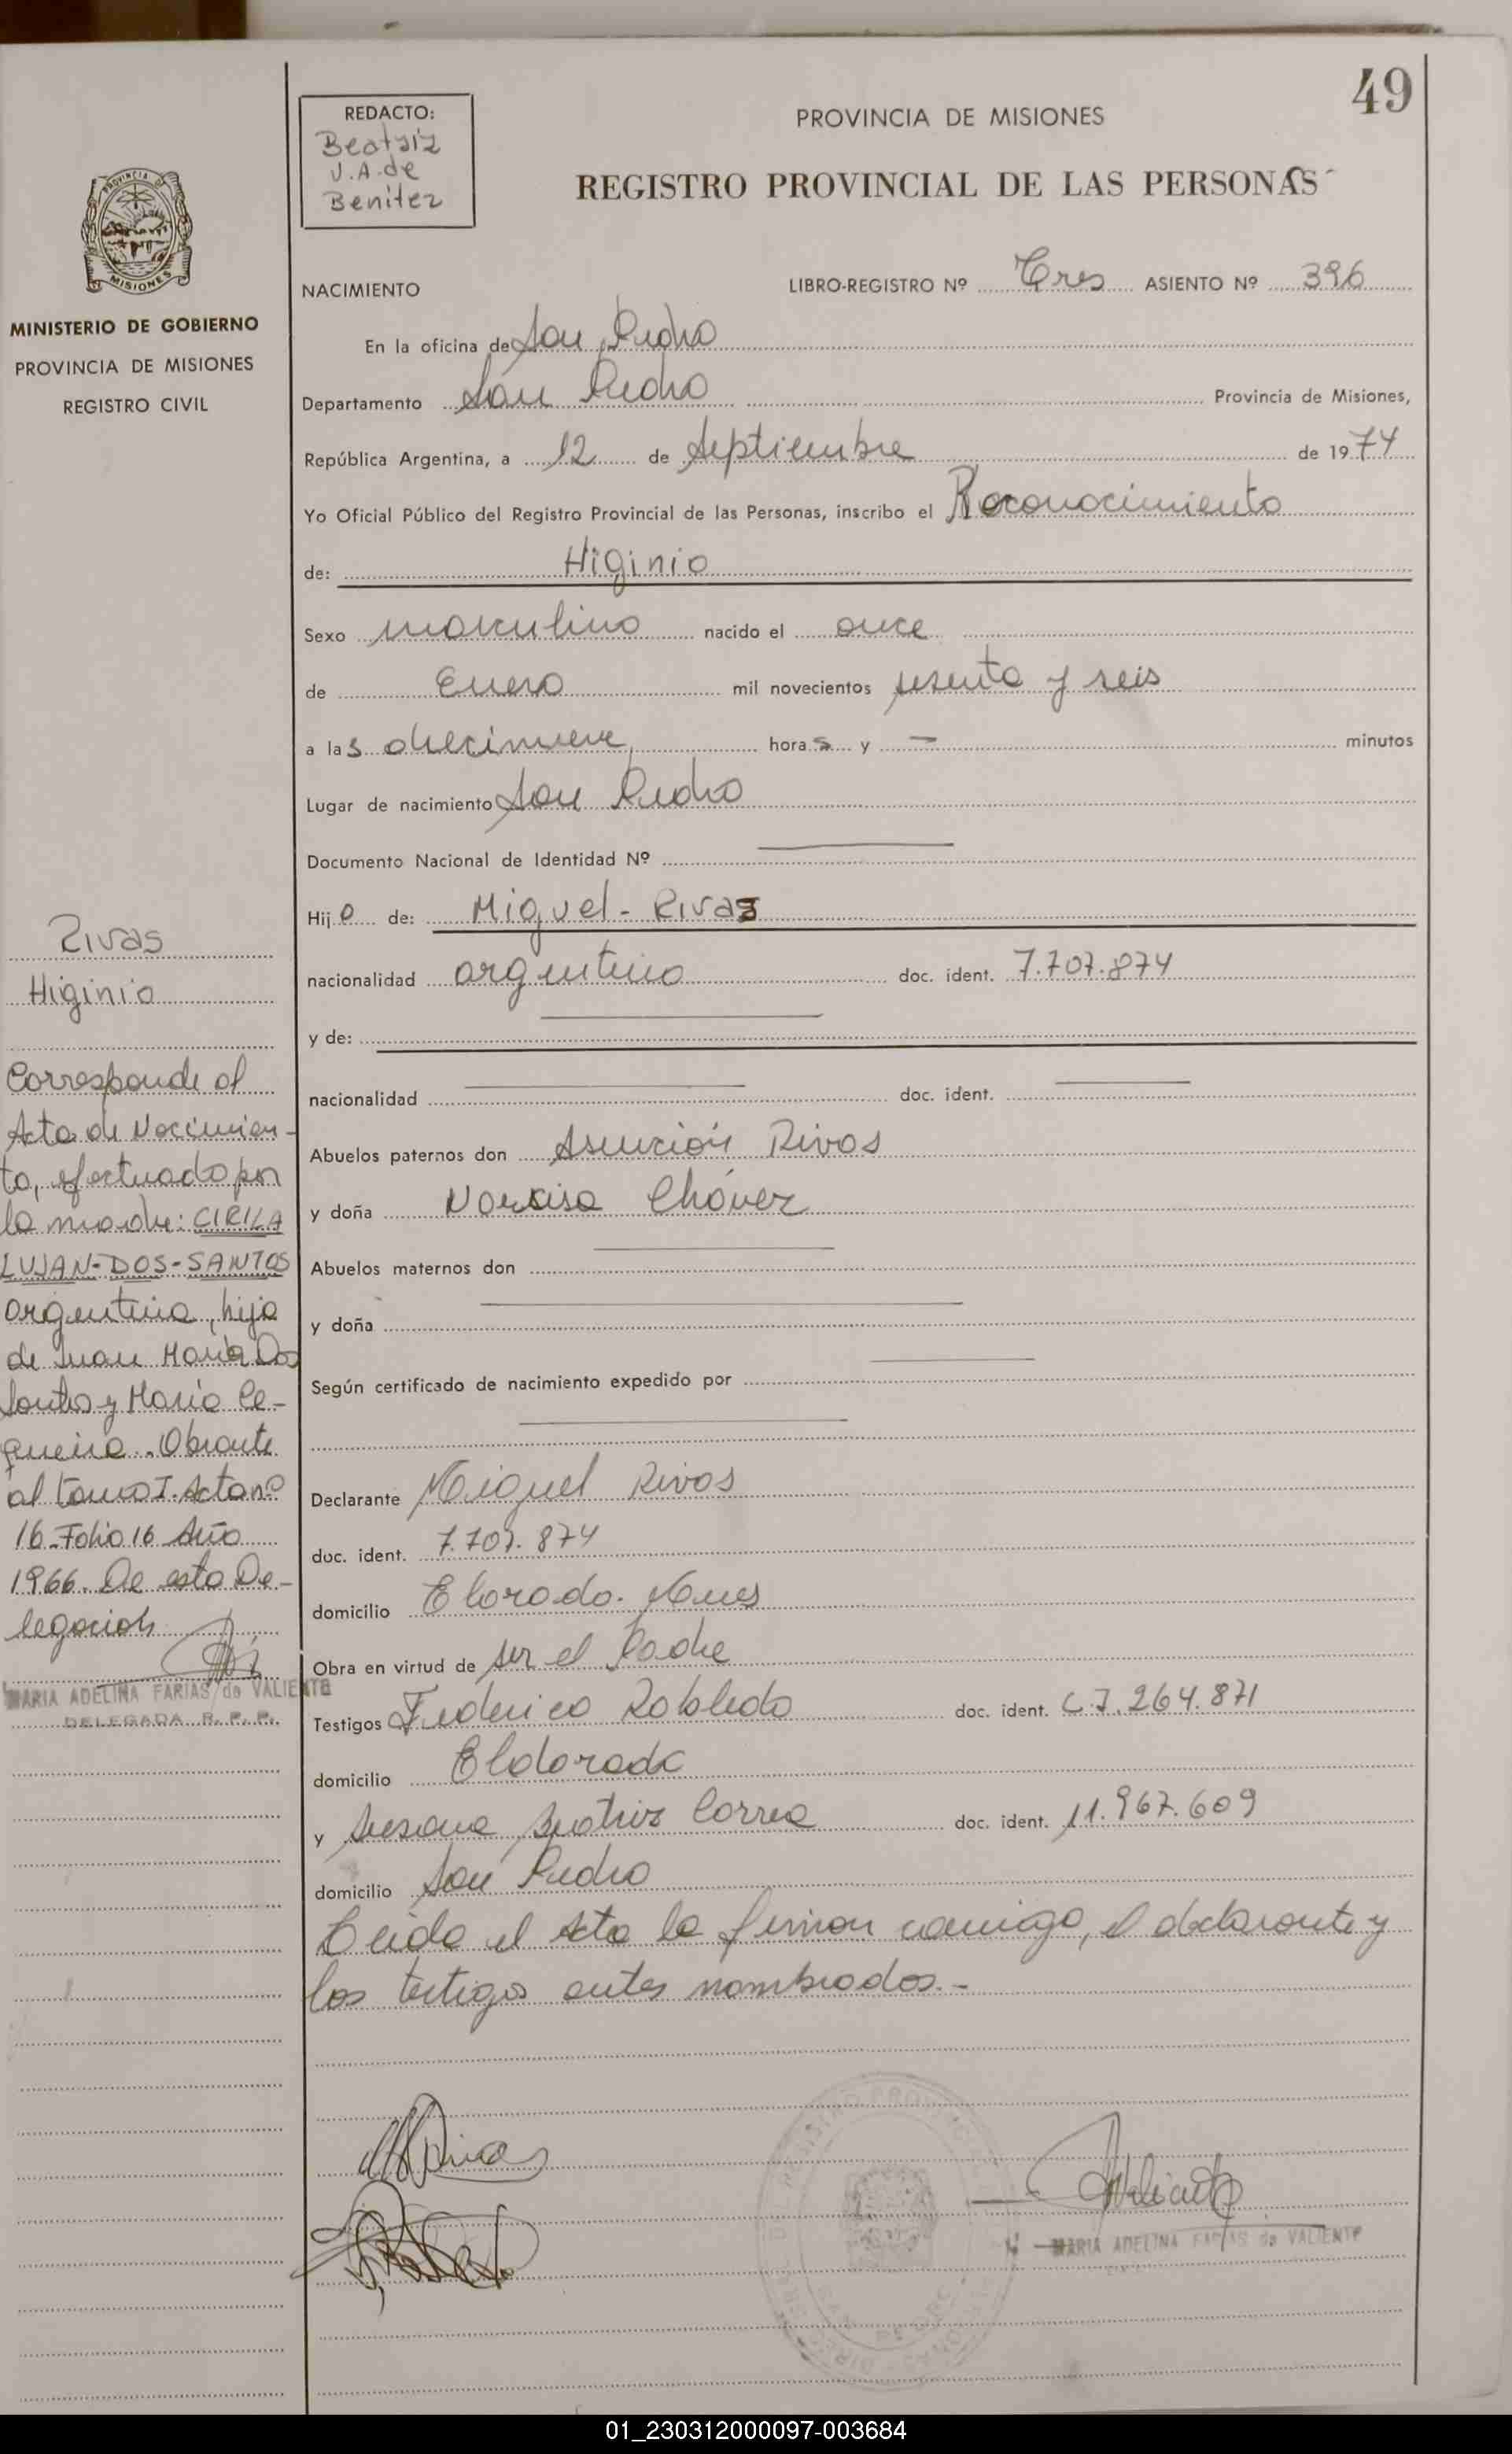 49
REDACTO:
Beatriz
V.A. de
Benitez
PROVINCIA DE MISIONES
REGISTRO PROVINCIAL DE LAS PERSONAS
PROVINCIA DE
MISIONES
MINISTERIO DE GOBIERNO
PROVINCIA DE MISIONES
REGISTRO CIVIL
NACIMIENTO LIBRO-REGISTRO Nº Tres ASIENTO Nº 396
En la oficina de San Pedro
Departamento San Pedro Provincia de Misiones,
República Argentina, a 12 de Septiembre de 1974
Yo Oficial Público del Registro Provincial de las Personas, inscribo el Reconocimiento
de: Higinio
Sexo masculino nacido el once
de Enero mil novecientos sesenta y seis
a las diecinueve horas y — minutos
Lugar de nacimiento San Pedro
Documento Nacional de Identidad Nº
Hijo de: Miguel - Rivas
nacionalidad argentino doc. ident. 7.707.874
y de:
nacionalidad doc. ident.
Abuelos paternos don Asunción Rivas
y doña Narcisa Chávez
Abuelos maternos don
y doña
Según certificado de nacimiento expedido por
Declarante Miguel Rivas
doc. ident. 7.707.874
domicilio Elorado. Mnes
Obra en virtud de ser el Padre
Testigos Federico Robledo doc. ident. C.I. 264.871
domicilio Eldorado
y Susana Beatriz Correa doc. ident. 11.967.609
domicilio San Pedro
Leida el Acta la firman conmigo, el declarante y
los testigos antes nombrados.-
Rivas
Higinio
Corresponde al
Acta de Nacimien-
to, efectuado por
la madre: CIRILA
LUJAN-DOS-SANTOS
argentina, hija
de Juan María Dos
Santos y María Ce-
queira. Obrante
al tomo I. Acta nº
16-Folio 16 Año
1966. De esta De-
legación
MARIA ADELINA FARIAS de VALIENTE
DELEGADA R. P. P.
MARIA ADELINA FARIAS de VALIENTE
01_230312000097-003684